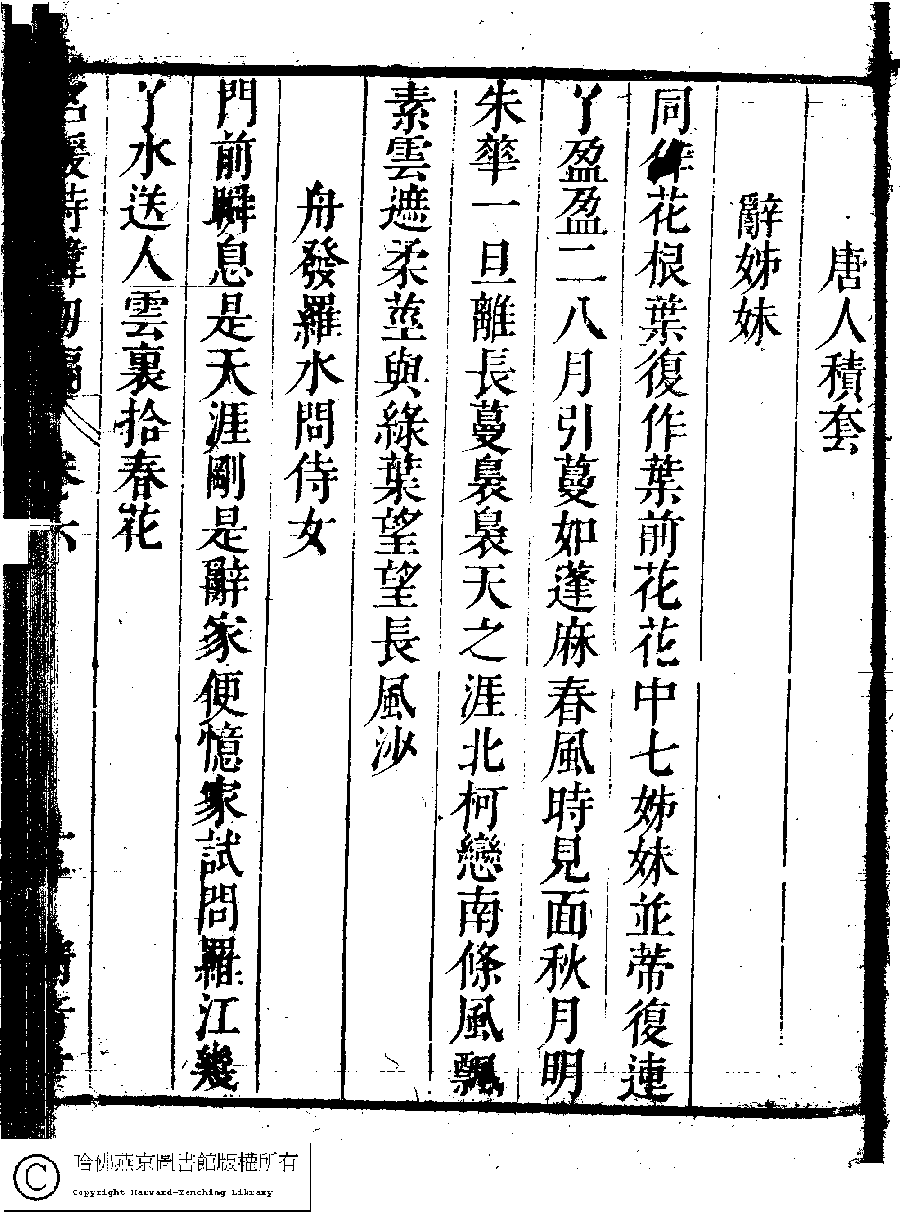 唐人積套
辭姊妹
同作花根葉復作葉前花花中七姊妹並蒂復連
丫盈盈二八月引蔓如蓬麻春風時見面秋月明
朱華一旦離長蔓裊裊天之涯北柯戀南條風飄
素雲遮柔莖與綠葉望望長風沙
舟發羅水問侍女
門前瞬息是天涯剛是辭家便憶家試問羅江幾
丫水送人雲裏拾春花
名媛詩緯初編 卷六
哈佛燕京圖書館版權所有
Copyright Harvard-Yenching Library